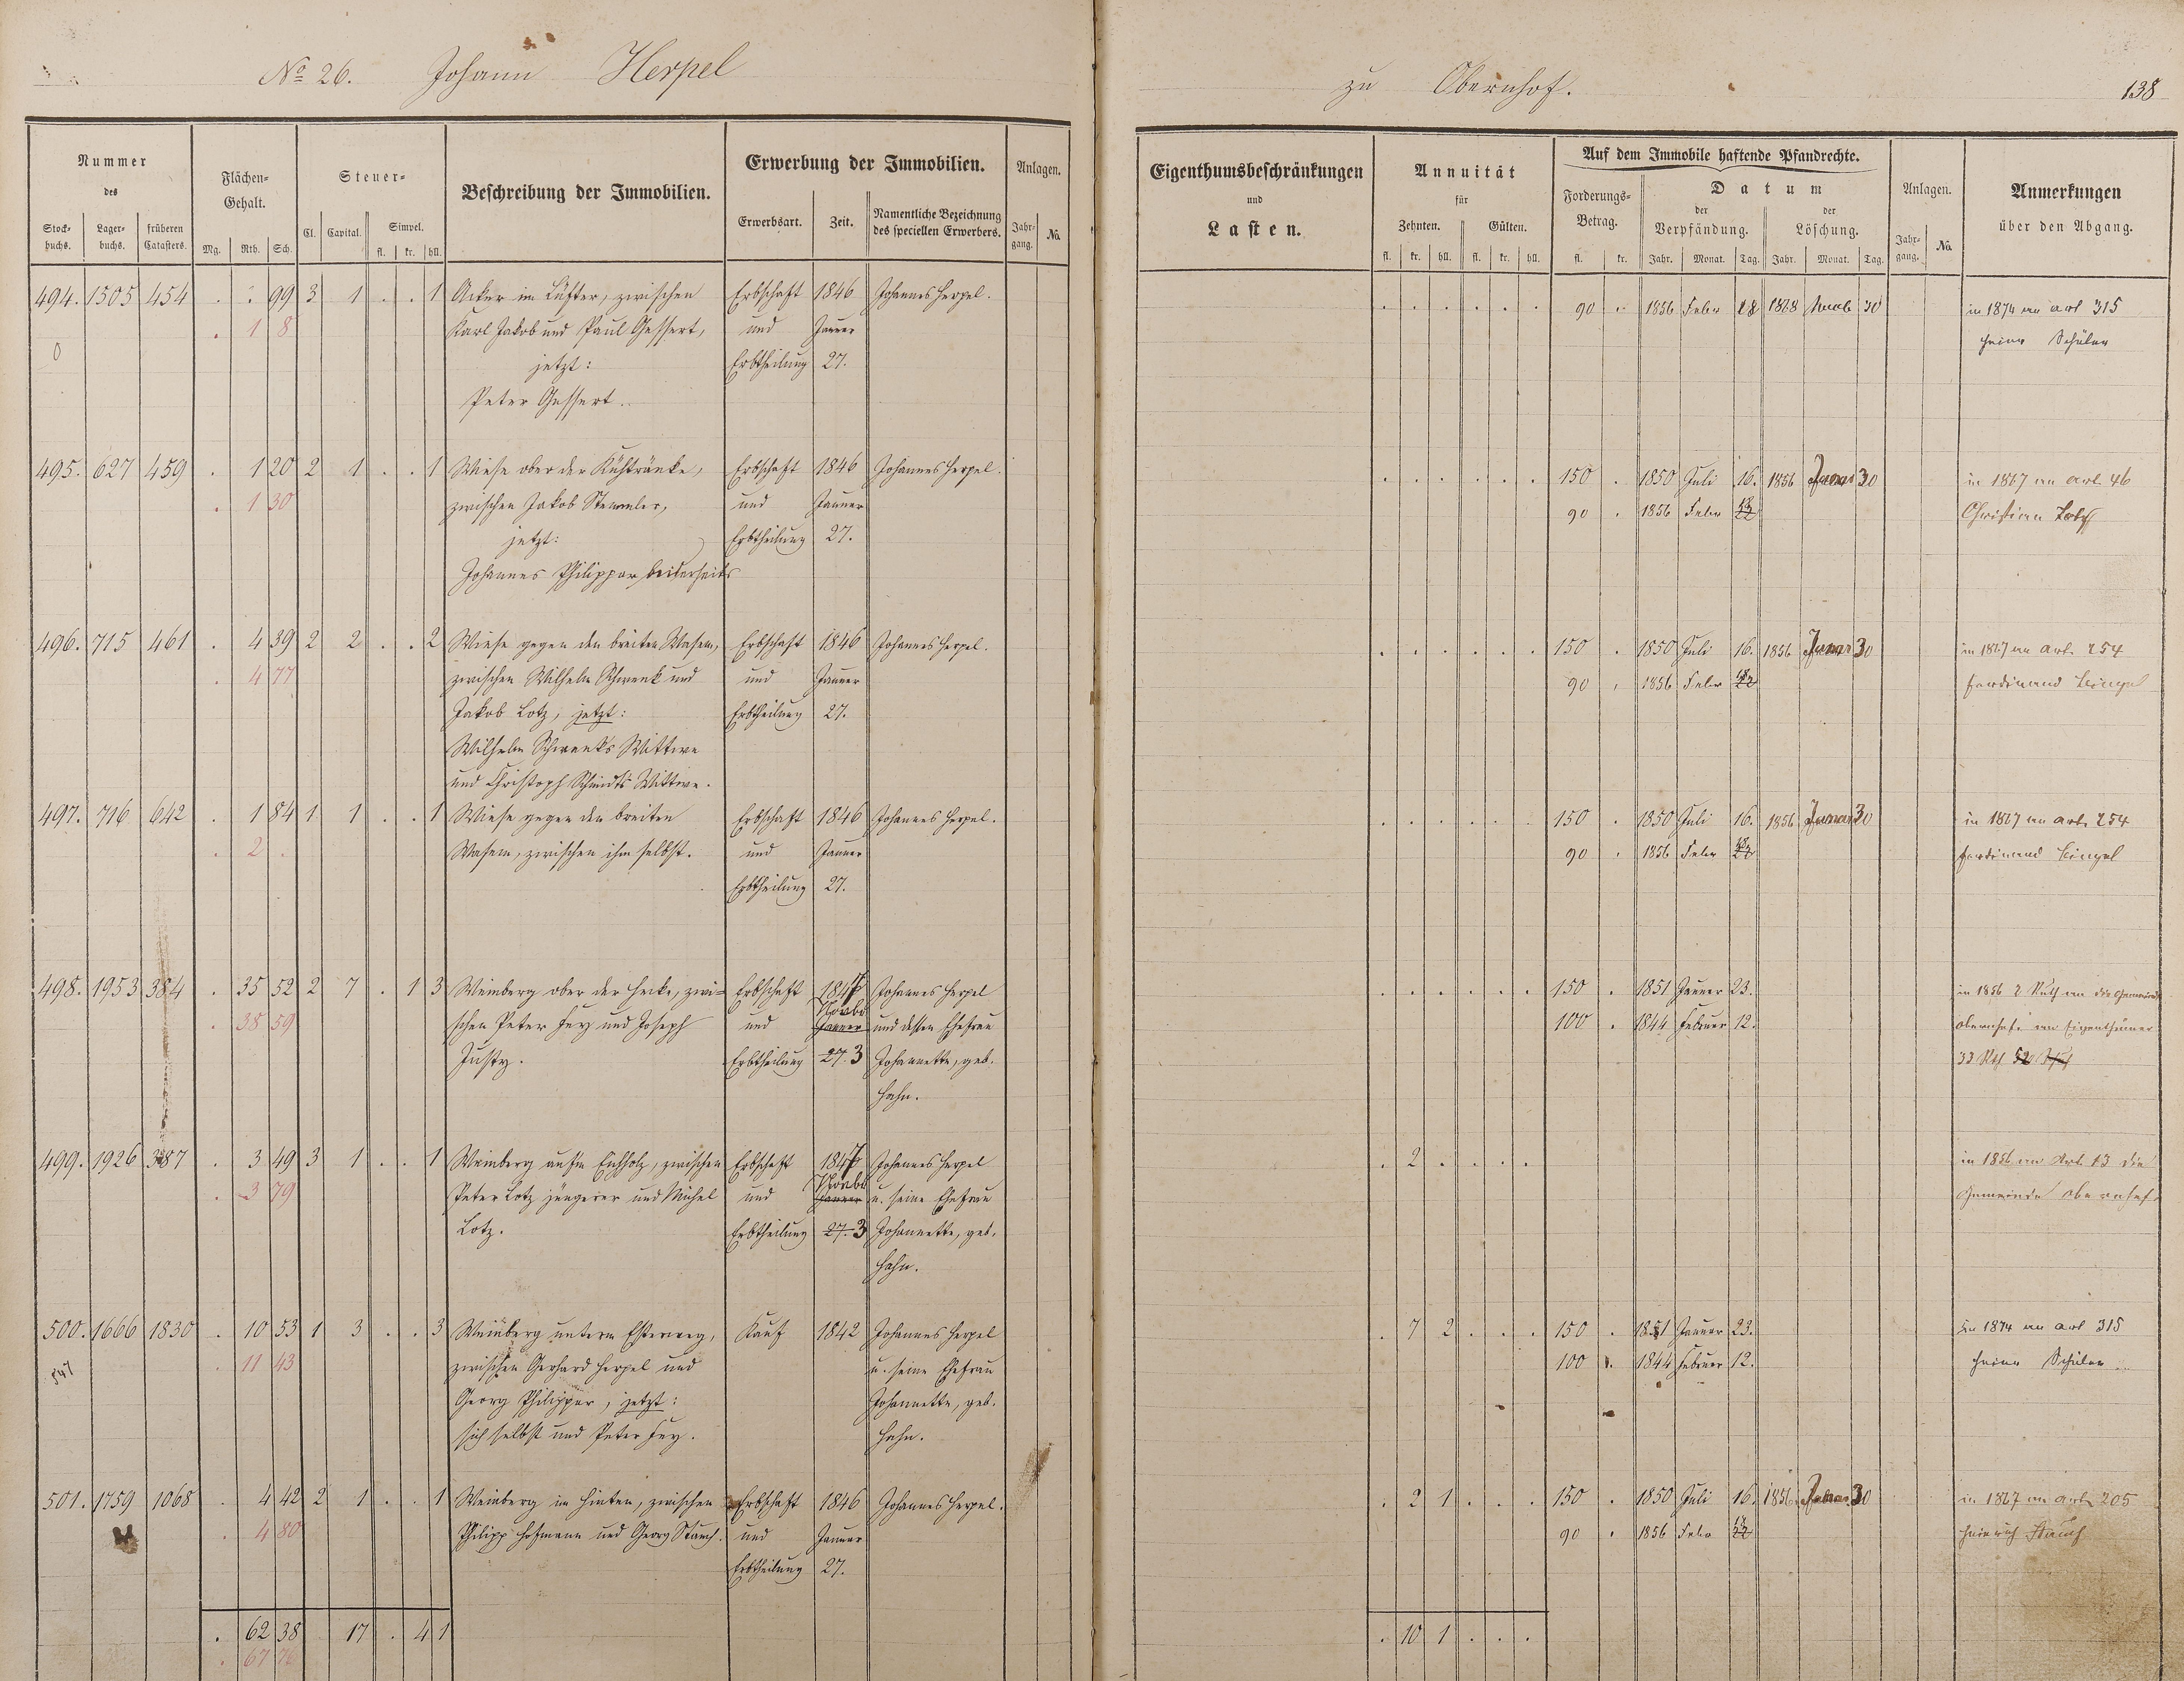 No 26. Johann Herpel
zu Obernhof.
138
Nummer
des
Stockbuchs.
Lagerbuchs.
früheren Catasters.
Flächen-Gehalt.
Mg. Rth. Sch.
Steuer-
Cl. Capital.
Simpel.
fl. kr. hll.
Beschreibung der Immobilien.
Erwerbung der Immobilien.
Erwerbsart. Zeit. Namentliche Bezeichnung des speciellen Erwerbers.
Anlagen.
Jahrgang. No.
Eigenthumsbeschränkungen
und
Lasten.
Annuität
für
Zehnten. Gülten.
fl. kr. hll. fl. kr. hll.
Auf dem Immobile haftende Pfandrechte.
Forderungs-Betrag.
fl. kr.
Datum
der Verpfändung. der Löschung.
Jahr. Monat. Tag. Jahr. Monat. Tag.
Anlagen.
Jahrgang. No.
Anmerkungen
über den Abgang.
494. 1505 454 . . 99 3 1 . . 1 Acker im Lüster, zwischen Erbschaft 1846 Johannes Herpel. 90 . 1856 Febr 28 1868 30 in 1874 an art 315
. 1 8 Karl Jakob und Paul Gessert, und Januar Schüler
0 jetzt: Erbtheilung 27.
Peter Gessert.
495. 627 459 . 1 20 2 1 . . 1 Wiese ober der Kühtränke, Erbschaft 1846 Johannes Herpel. 150 . 1850 Juli 16. 1856 Januar 30 in 1867 an art 46
. 1 30 zwischen Jakob Stemmler, und Januar 90 . 1856 Febr Christian
jetzt: Erbtheilung 27.
Johannes Philippar beiderseits
496. 715 461 . 4 39 2 2 . . 2 Wiese gegen den breiten Wasem, Erbschaft 1846 Johannes Herpel. 150 . 1850 Juli 16. 1856 Januar 30 in 1867 an art. 254
. 4 77 zwischen Wilhelm Schwenk und und Januar 90 . 1856 Febr Ferdinand
Jakob Lotz, jetzt: Erbtheilung 27.
Wilhelm Schwenk's Wittwe
und Christoph Schmidt's Wittwe.
497. 716 642 . 1 84 1 1 . . 1 Wiese gegen den breiten Erbschaft 1846 Johannes Herpel. 150 . 1850 Juli 16. 1856 Januar 30 in 1867 an art. 254
. 2 . Wasem, zwischen ihm selbst. und Januar 90 . 1856 Febr Ferdinand
Erbtheilung 27.
498. 1953 384 . 35 52 2 7 . 1 3 Weinberg ober der Hecke, zwi- Erbschaft 1847 Johannes Herpel 150 . 1851 Januar 23. in 1856 2 Ruth an die Gemeinde
. 38 59 schen Peter Fey und Joseph und Novbr Januar und dessen Ehefrau 100 . 1844 Februar 12. Obernhof. an Eigenthümer
Justy. Erbtheilung 27. 3 Johannette, geb. 33 Rth 52
Hahn.
499. 1926 387 . 3 49 3 1 . . 1 Weinberg aufm Eichholz, zwischen Erbschaft 1847 Johannes Herpel . 2 . . . . in 1856 an Art. 13 die
. 3 79 Peter Lotz jüngerer und Michel und Novbr Januar u. seine Ehefrau Gemeinde Obernhof
Lotz. Erbtheilung 27. 3 Johannette, geb.
Hahn.
500. 1666 1830 . 10 53 1 3 . . 3 Weinberg unterm Kauf 1842 Johannes Herpel . 7 2 . . . 150 . 1851 Januar 23. in 1874 an art 315
547 . 11 43 zwischen Gerhard Herpel und u. seine Ehefrau 100 . 1844 Februar 12. Schüler
Georg Philippar, jetzt: Johannette, geb.
sich selbst und Peter Fey. Hahn.
501. 1759 1068 . 4 42 2 1 . . 1 Weinberg im Hinten, zwischen Erbschaft 1846 Johannes Herpel. . 2 1 . . . 150 . 1850 Juli 16. 1856 Januar 30 in 1867 an art. 205
. 4 80 Philipp Hofmann und Georg Stauch. und Januar 90 . 1856 Febr Heinrich Stauch
Erbtheilung 27.
. 62 38 17 . 4 1 . 10 1 . . .
. 67 76